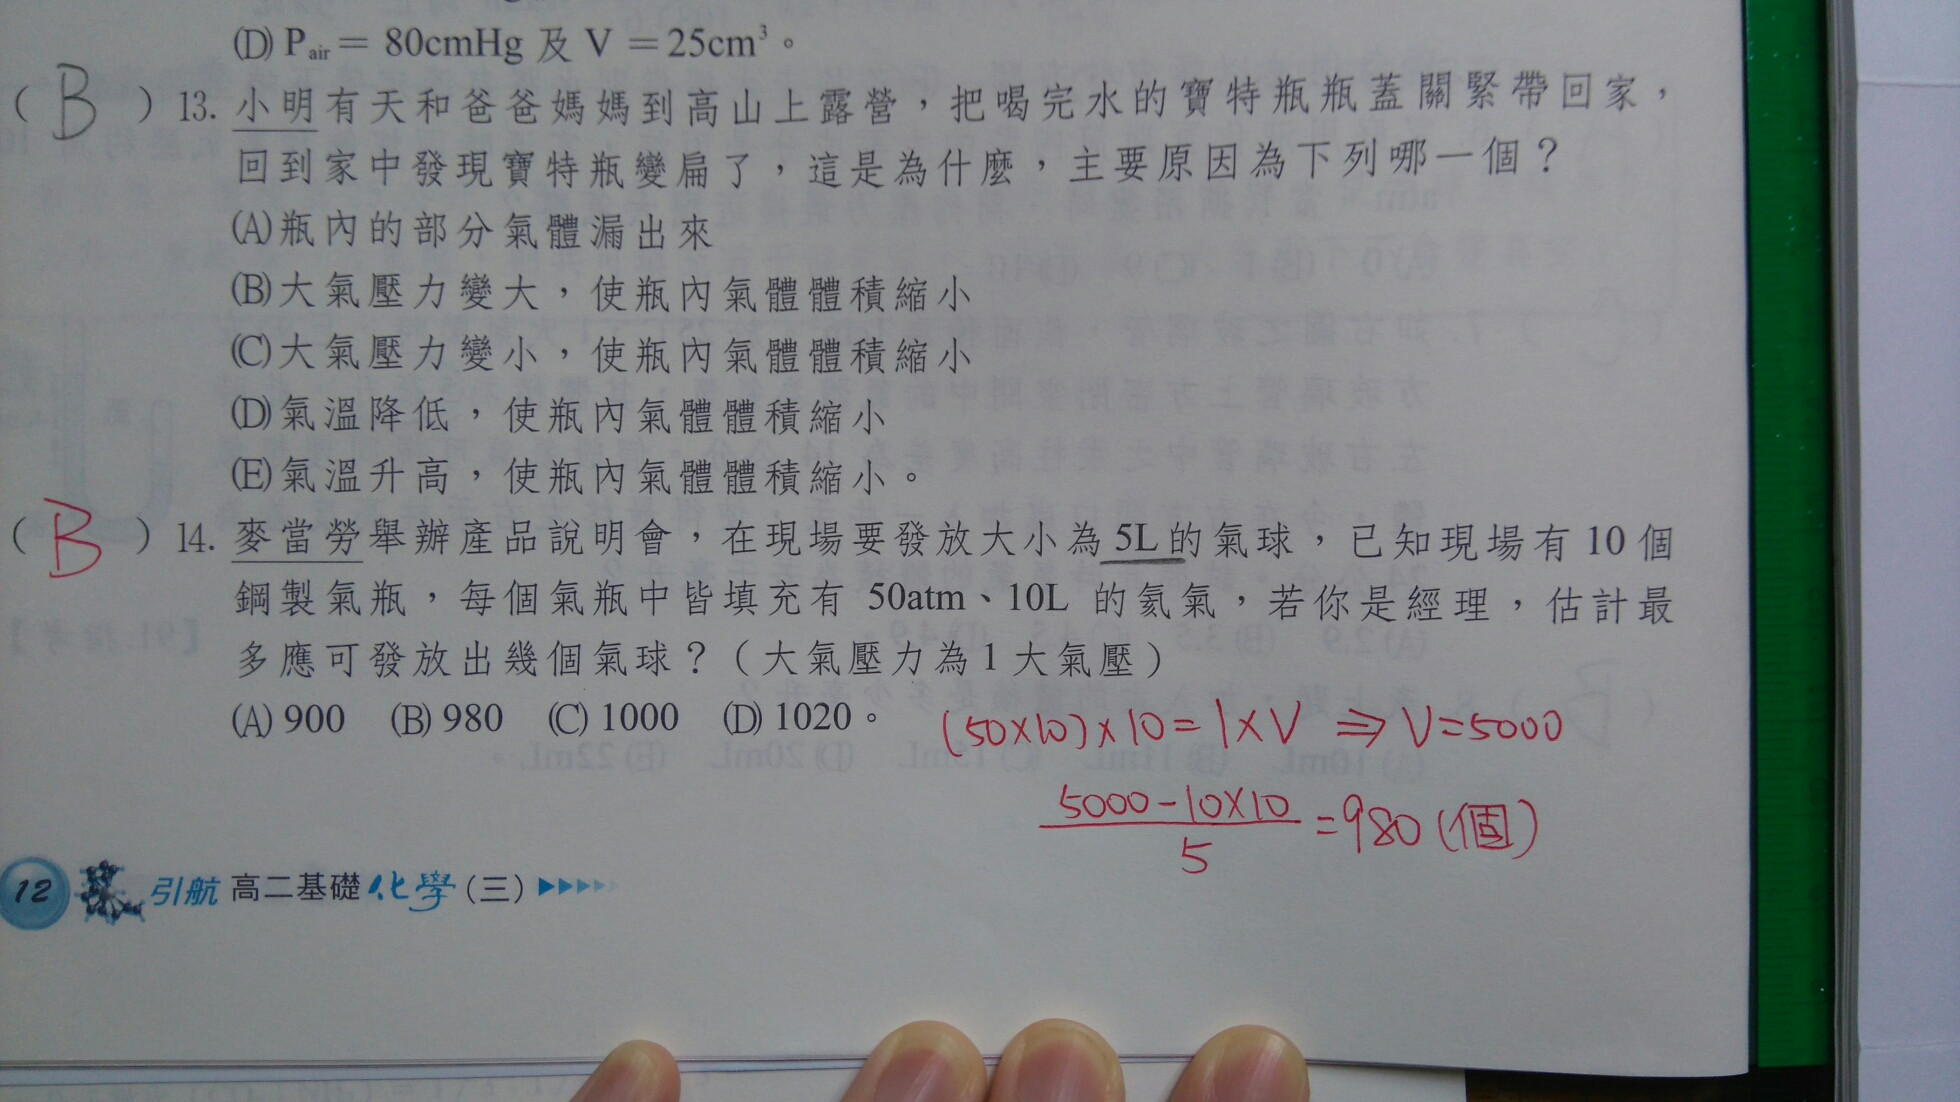 (D) Pair = 80cmHg 及 V = 25cm³。
( B ) 13. 小明有天和爸爸媽媽到高山上露營，把喝完水的寶特瓶瓶蓋關緊帶回家，
回到家中發現寶特瓶變扁了，這是為什麼，主要原因為下列哪一個？
(A)瓶內的部分氣體漏出來
(B)大氣壓力變大，使瓶內氣體體積縮小
(C)大氣壓力變小，使瓶內氣體體積縮小
(D)氣溫降低，使瓶內氣體體積縮小
(E)氣溫升高，使瓶內氣體體積縮小。
( B ) 14. 麥當勞舉辦產品說明會，在現場要發放大小為 5L 的氣球，已知現場有 10 個
鋼製氣瓶，每個氣瓶中皆填充有 50atm、10L 的氦氣，若你是經理，估計最
多應可發放出幾個氣球？（大氣壓力為 1 大氣壓）
(A) 900 (B) 980 (C) 1000 (D) 1020。
(50×10)×10=1×V ⇒ V=5000
5000-10×10
5
=980 (個)
12 引航 高二基礎化學(三)